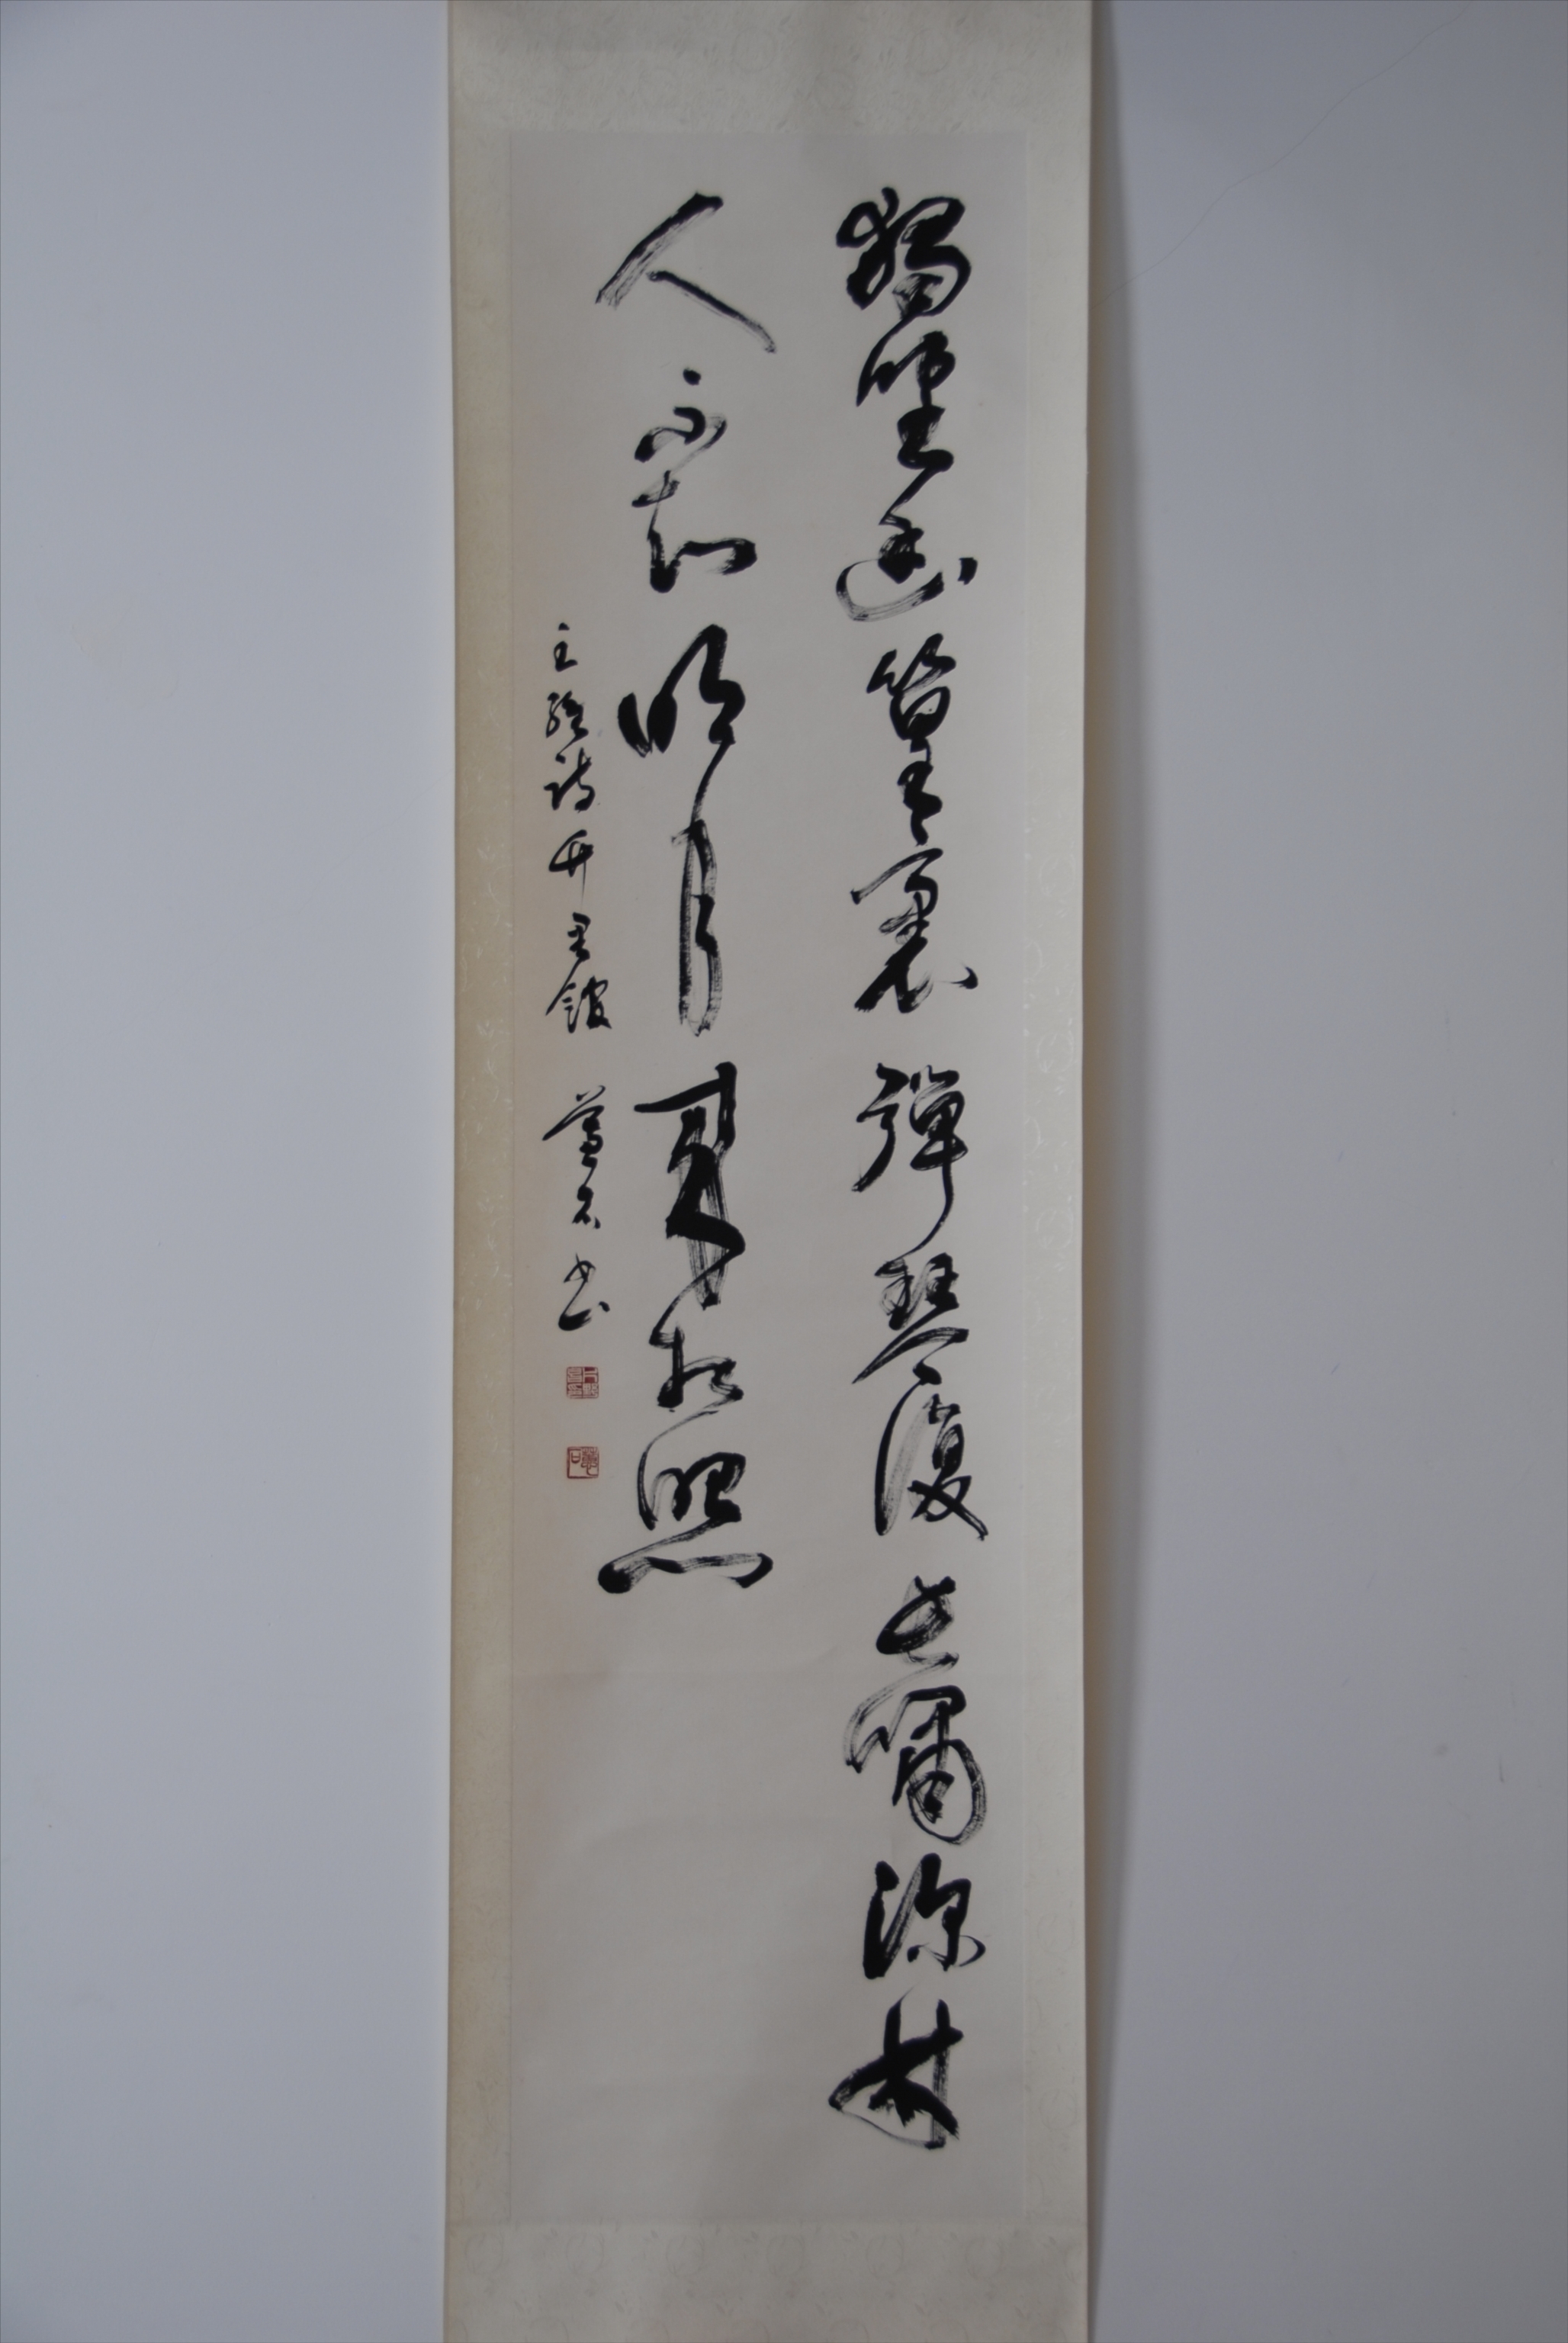 獨坐幽篁裏彈琴復長嘯深林
人不知明月來相照
王維詩竹里館 書